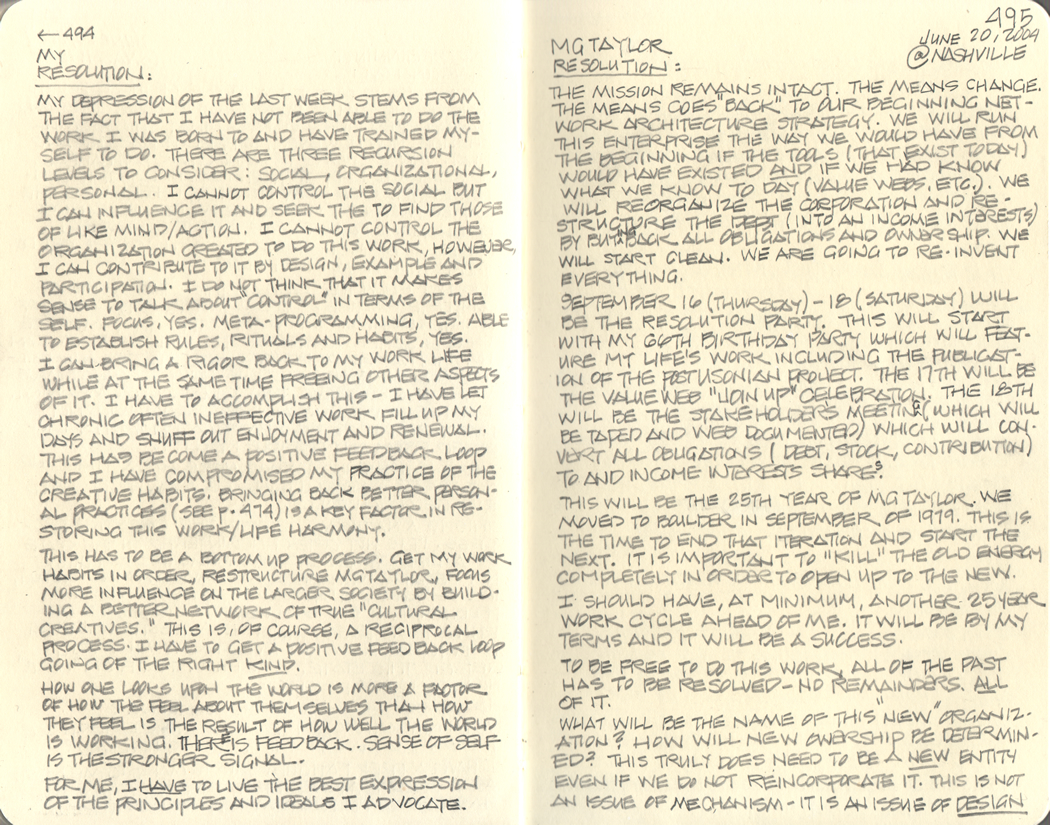 ← 494
MY
RESOLUTION:
MY DEPRESSION OF THE LAST WEEK STEMS FROM
THE FACT THAT I HAVE NOT BEEN ABLE TO DO THE
WORK I WAS BORN TO AND HAVE TRAINED MY-
SELF TO DO. THERE ARE THREE RECURSION
LEVELS TO CONSIDER: SOCIAL, ORGANIZATIONAL,
PERSONAL. I CANNOT CONTROL THE SOCIAL BUT
I CAN INFLUENCE IT AND SEEK THE TO FIND THOSE
OF LIKE MIND/ACTION. I CANNOT CONTROL THE
ORGANIZATION CREATED TO DO THIS WORK, HOWEVER,
I CAN CONTRIBUTE TO IT BY DESIGN, EXAMPLE AND
PARTICIPATION. I DO NOT THINK THAT IT MAKES
SENSE TO TALK ABOUT "CONTROL" IN TERMS OF THE
SELF. FOCUS, YES. META-PROGRAMMING, YES. ABLE
TO ESTABLISH RULES, RITUALS AND HABITS, YES.
I CAN BRING A RIGOR BACK TO MY WORK LIFE
WHILE AT THE SAME TIME FREEING OTHER ASPECTS
OF IT. I HAVE TO ACCOMPLISH THIS - I HAVE LET
CHRONIC OFTEN INEFFECTIVE WORK FILL UP MY
DAYS AND SNUFF OUT ENJOYMENT AND RENEWAL.
THIS HAS BECOME A POSITIVE FEEDBACK LOOP
AND I HAVE COMPROMISED MY PRACTICE OF THE
CREATIVE HABITS. BRINGING BACK BETTER PERSON-
AL PRACTICES (SEE p. 474) IS A KEY FACTOR IN RE-
STORING THIS WORK/LIFE HARMONY.
THIS HAS TO BE A BOTTOM UP PROCESS. GET MY WORK
HABITS IN ORDER, RESTRUCTURE MGTAYLOR, FOCUS
MORE INFLUENCE ON THE LARGER SOCIETY BY BUILD-
ING A BETTER NETWORK OF TRUE "CULTURAL
CREATIVES." THIS IS, OF COURSE, A RECIPROCAL
PROCESS. I HAVE TO GET A POSITIVE FEED BACK LOOP
GOING OF THE RIGHT KIND.
HOW ONE LOOKS UPON THE WORLD IS MORE A FACTOR
OF HOW THE FEEL ABOUT THEMSELVES THAN HOW
THEY FEEL IS THE RESULT OF HOW WELL THE WORLD
IS WORKING. THERE IS FEEDBACK. SENSE OF SELF
IS THE STRONGER SIGNAL.
FOR ME, I HAVE TO LIVE THE BEST EXPRESSION
OF THE PRINCIPLES AND IDEALS I ADVOCATE.
495
JUNE 20, 2004
@NASHVILLE
MGTAYLOR
RESOLUTION:
THE MISSION REMAINS INTACT. THE MEANS CHANGE.
THE MEANS GOES "BACK" TO OUR BEGINNING NET-
WORK ARCHITECTURE STRATEGY. WE WILL RUN
THIS ENTERPRISE THE WAY WE WOULD HAVE FROM
THE BEGINNING IF THE TOOLS (THAT EXIST TODAY)
WOULD HAVE EXISTED AND IF WE HAD KNOW
WHAT WE KNOW TO DAY (VALUE WEBS, ETC.). WE
WILL REORGANIZE THE CORPORATION AND RE-
STRUCTURE THE DEBT (INTO AN INCOME INTERESTS)
BY BACK ALL OBLIGATIONS AND OWNERSHIP. WE
WILL START CLEAN. WE ARE GOING TO RE-INVENT
EVERYTHING.
SEPTEMBER 16 (THURSDAY) - 18 (SATURDAY) WILL
BE THE RESOLUTION PARTY. THIS WILL START
WITH MY 66TH BIRTHDAY PARTY WHICH WILL FEAT-
URE MY LIFE'S WORK INCLUDING THE PUBLICAT-
ION OF THE POSTUSONIAN PROJECT. THE 17TH WILL BE
THE VALUE WEB "JOIN UP" CELEBRATION. THE 18TH
WILL BE THE STAKEHOLDERS MEETING (WHICH WILL
BE TAPED AND WEB DOCUMENTED) WHICH WILL CON-
VERT ALL OBLIGATIONS (DEBT, STOCK, CONTRIBUTION)
TO AND INCOME INTERESTS SHARES.
THIS WILL BE THE 25TH YEAR OF MG TAYLOR. WE
MOVED TO BOULDER IN SEPTEMBER OF 1979. THIS IS
THE TIME TO END THAT ITERATION AND START THE
NEXT. IT IS IMPORTANT TO "KILL" THE OLD ENERGY
COMPLETELY IN ORDER TO OPEN UP TO THE NEW.
I SHOULD HAVE, AT MINIMUM, ANOTHER 25 YEAR
WORK CYCLE AHEAD OF ME. IT WILL BE BY MY
TERMS AND IT WILL BE A SUCCESS.
TO BE FREE TO DO THIS WORK, ALL OF THE PAST
HAS TO BE RESOLVED - NO REMAINDERS. ALL
OF IT.
WHAT WILL BE THE NAME OF THIS "NEW" ORGANIZ-
ATION? HOW WILL NEW OWERSHIP BE DETERMIN-
ED? THIS TRULY DOES NEED TO BE A NEW ENTITY
EVEN IF WE DO NOT REINCORPORATE IT. THIS IS NOT
AN ISSUE OF MECHANISM - IT IS AN ISSUE OF DESIGN